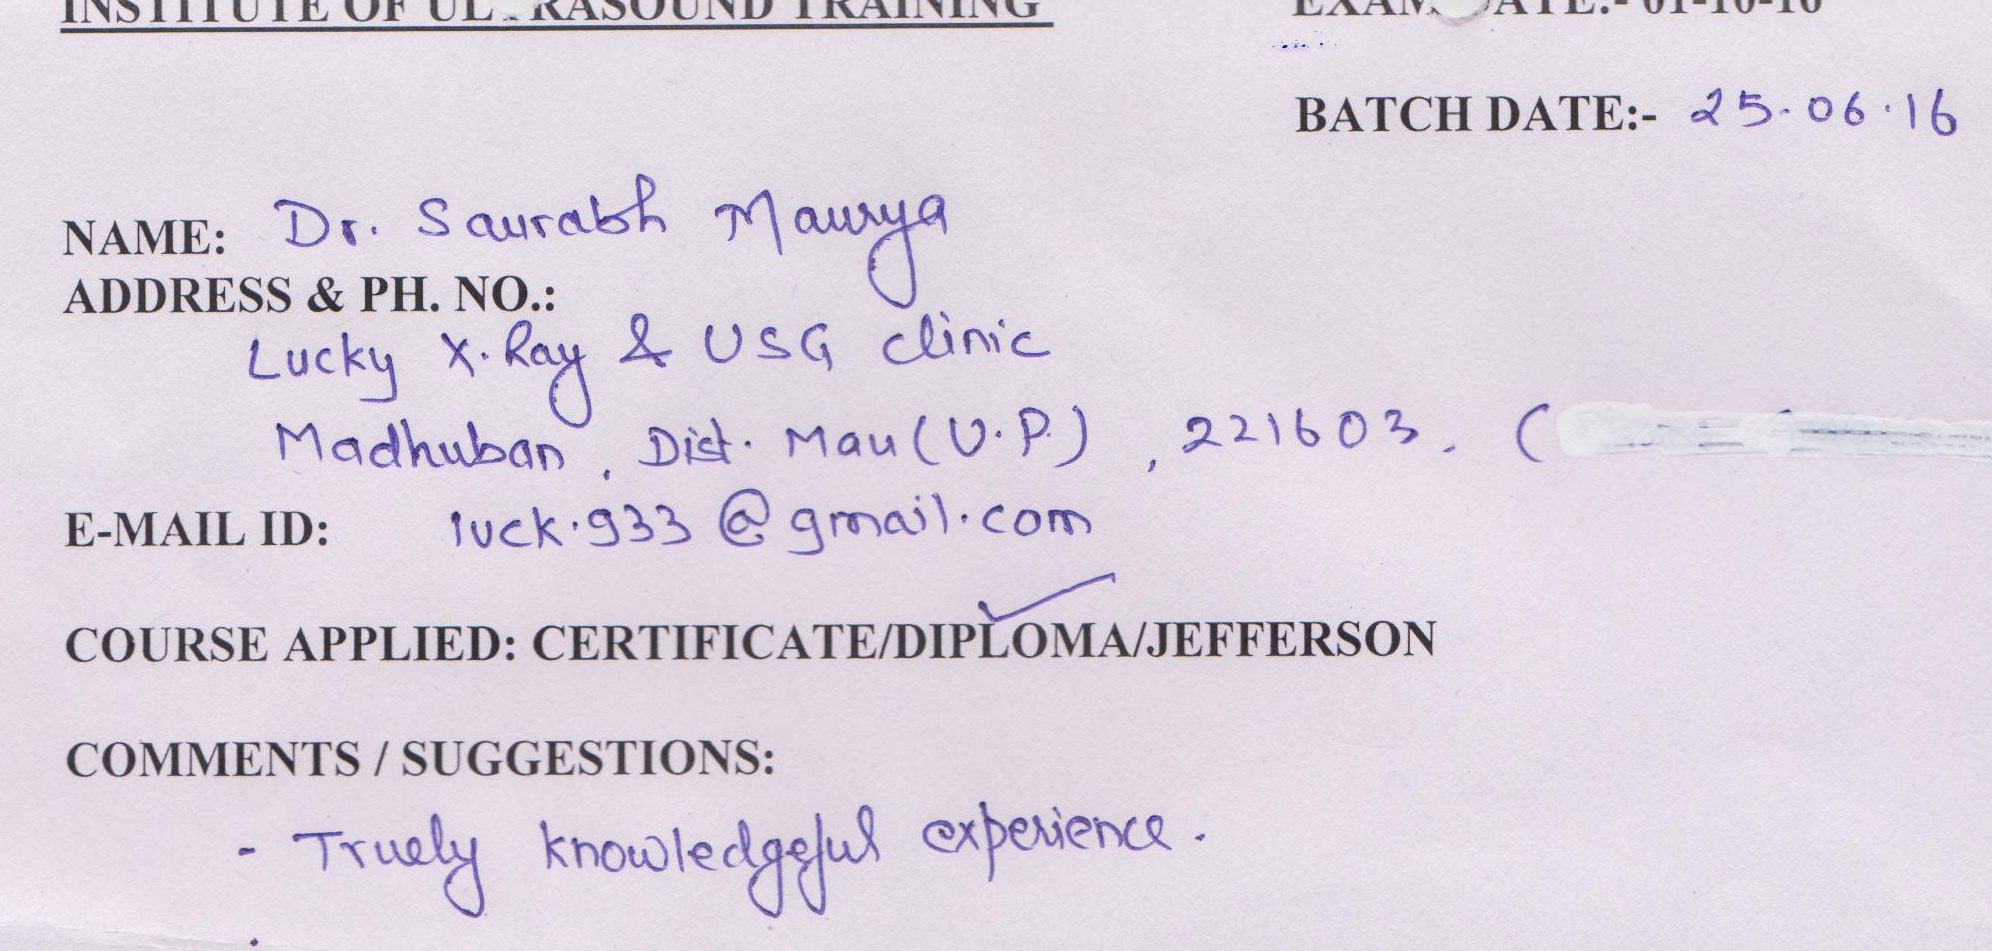 INSTITUTE OF ULTRASOUND TRAINING
EXAM DATE:- 01-10-16
BATCH DATE:- 25.06.16
NAME: Dr. Saurabh Maurya
ADDRESS & PH. NO.:
Lucky X.Ray & USG clinic
Madhuban, Dist. Mau (U.P.), 221603. (
E-MAIL ID: luck.933@gmail.com
COURSE APPLIED: CERTIFICATE/DIPLOMA/JEFFERSON
COMMENTS / SUGGESTIONS:
- Truely knowledgeful experience.